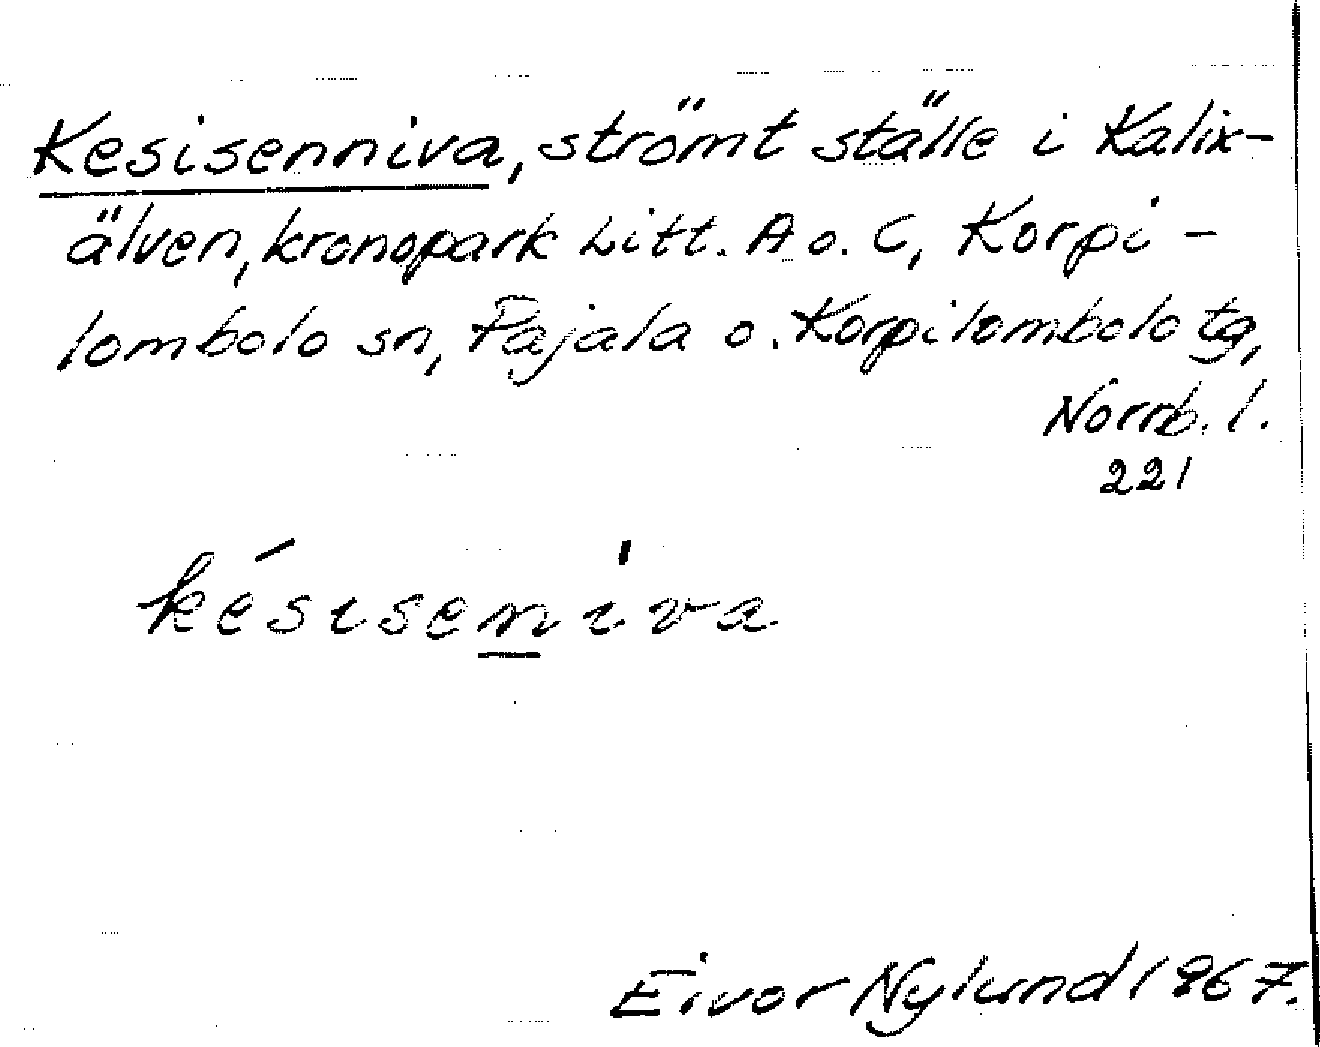 Kesisenniva, strömt ställe i Kalix-
älven, kronopark Litt. A o. C, Korpi-
lombolo sn, Pajala o. Korpilombolo tg,
Norrb. l.
221
késiseniva
Eivor Nylund 1967.